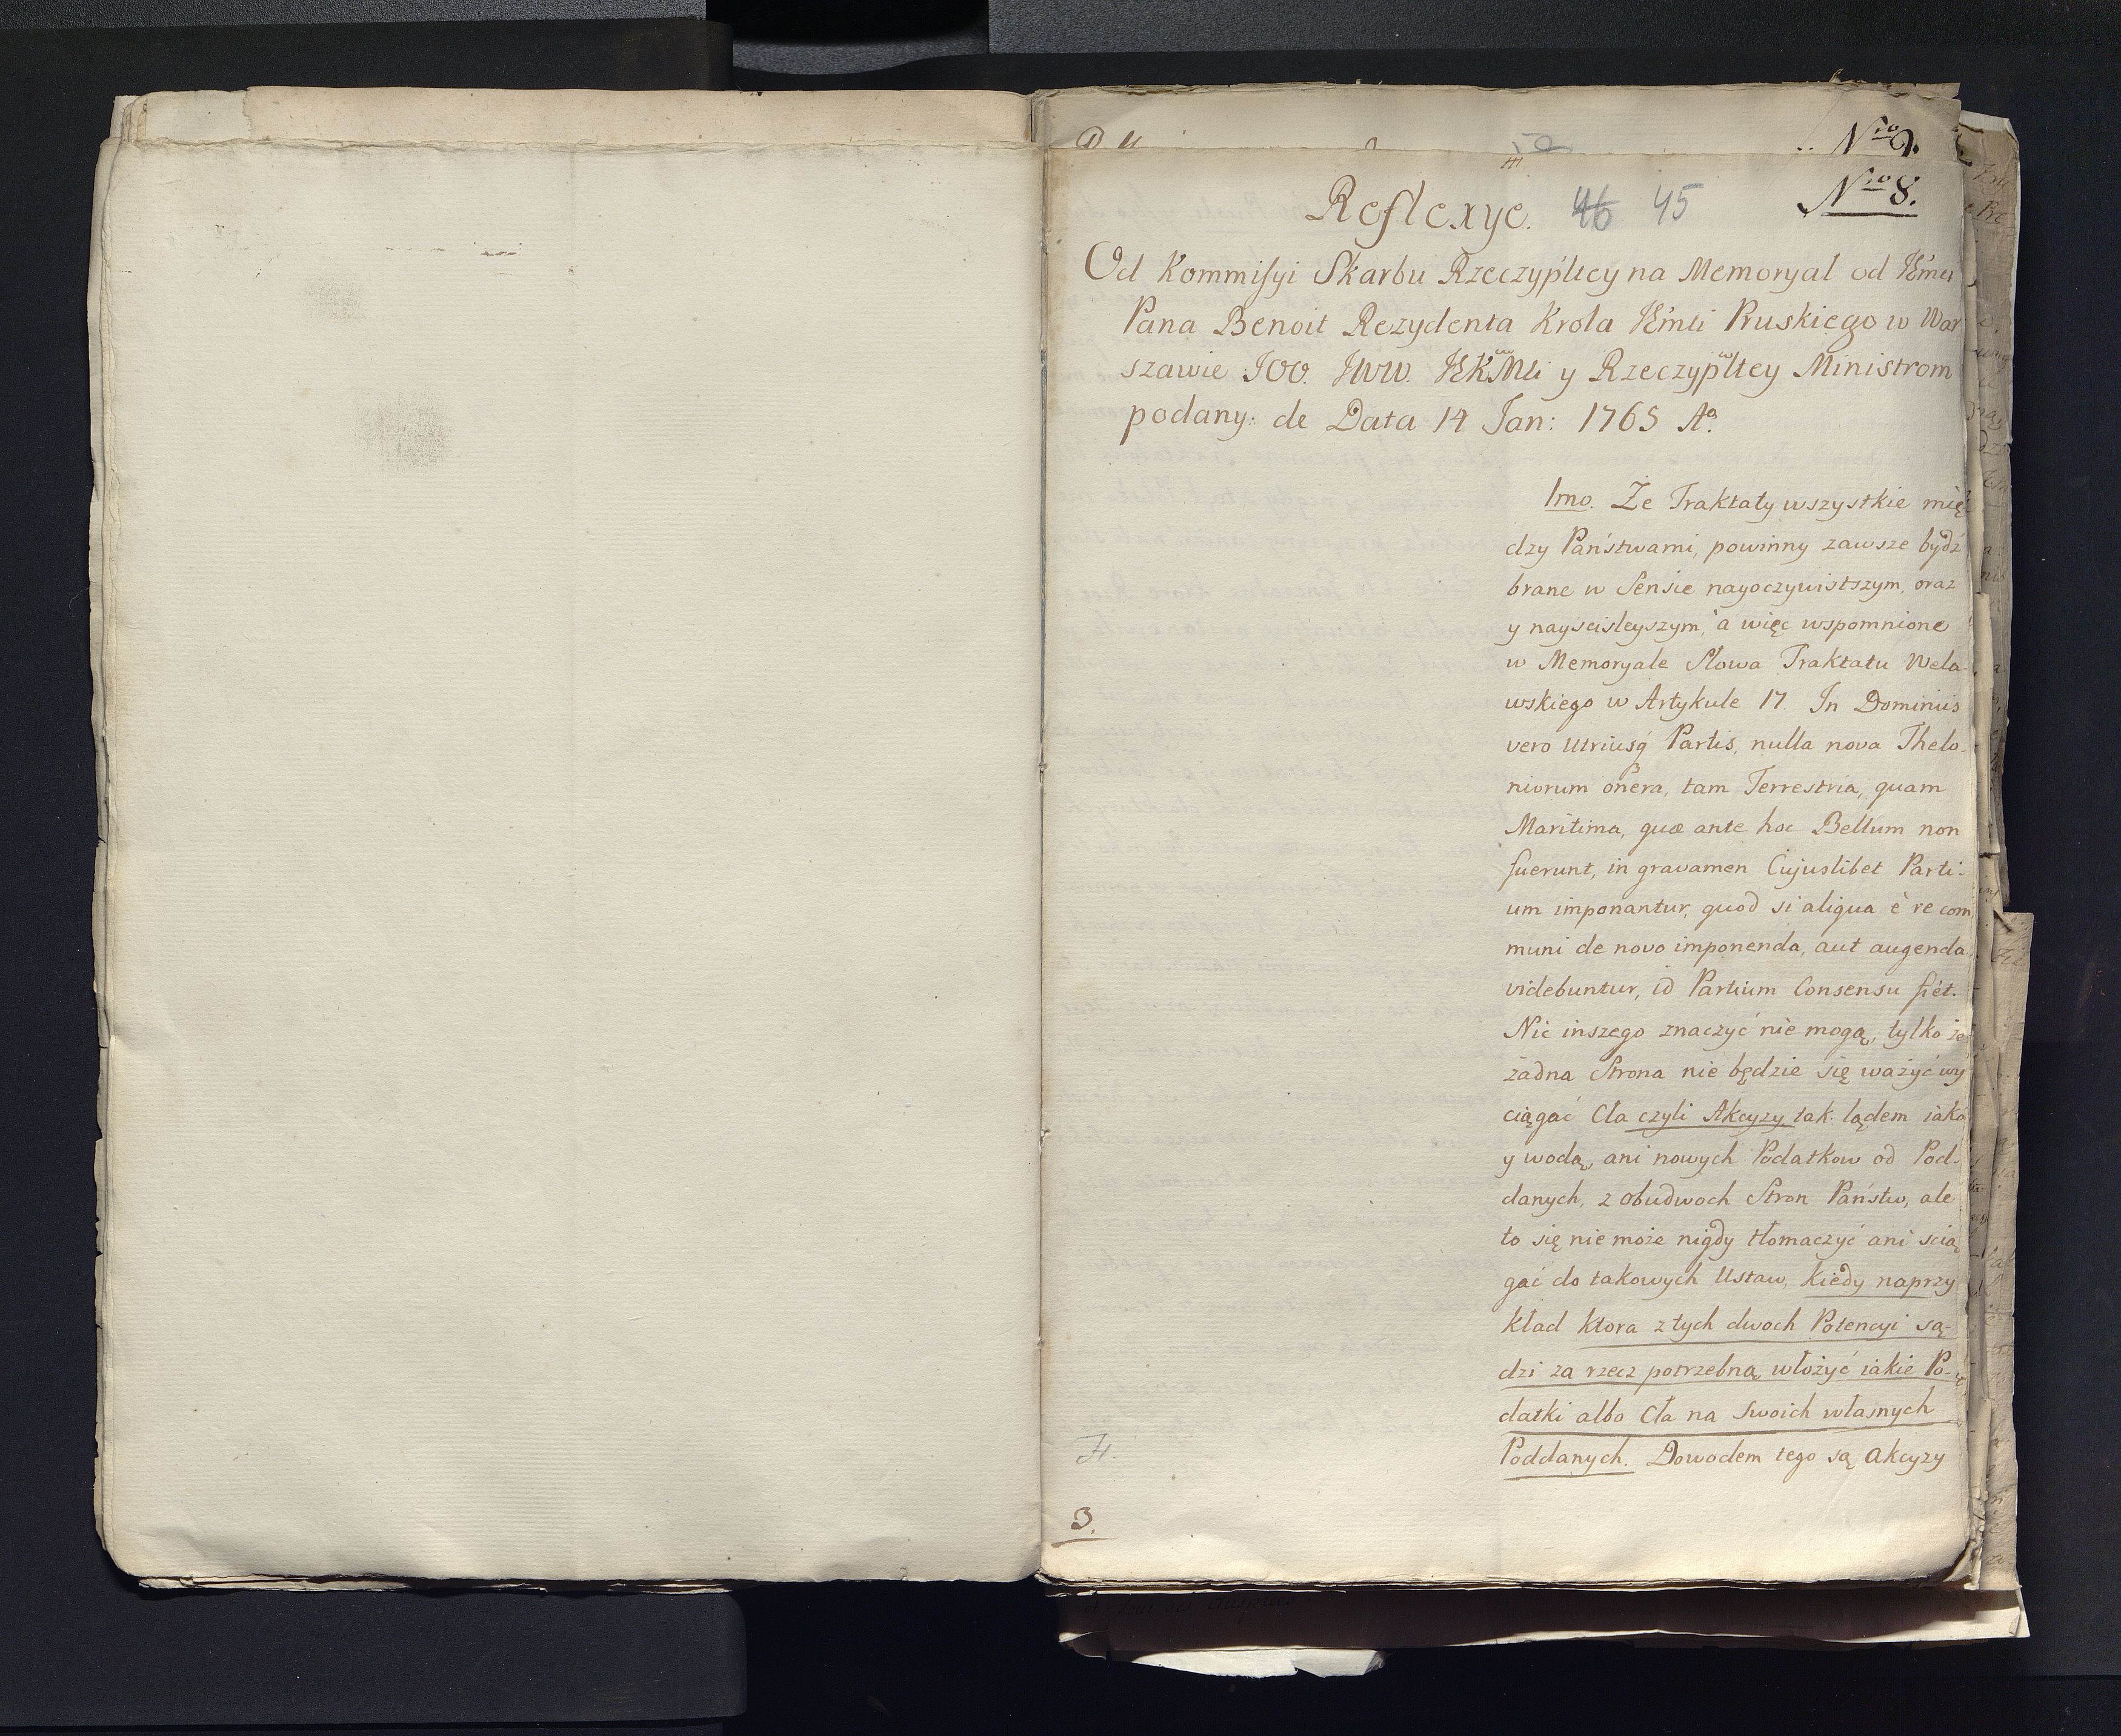 Nro 9.
Nro 8.
Reflexye. 46 45
Od Kommisyi Skarbu Rzeczyp'ltey na Memoryal od
Pana Benoit Rezydenta Krola JK'mci Pruskiego w War
szawie JOO. JWW. JKMci y Rzeczyp'ltey Ministrom
podany: de Data 14 Jan: 1765 Ao.
1mo. Że Traktaty wszystkie mię
dzy Państwami, powinny zawsze bydź
brane w Sensie nayoczywistszym, oraz
y nayscisleyszym, a więc wspomnione
w Memoryale Słowa Traktatu Wela-
wskiego w Artykule 17. In Dominiis
vero utriusq Partis, nulla nova Thelo-
niorum onera, tam Terrestria, quam
Maritima, quæ ante hoc Bellum non
fuerunt, in gravamen Cujuslibet Parti-
um imponantur, quod si aliqua è re com
muni de novo imponenda, aut augenda
videbuntur, id Partium Consensu fiet.
Nic inszego znaczyć nie mogą, tylko że
żadna Strona nie będzie się ważyć wy
ciągać Cła czyli Akcyzy tak lądem iako
y wodą, ani nowych Podatkow od Pod-
danych, z obudwoch Stron Państw, ale
to się nie może nigdy tłomaczyć ani ścią
gać do takowych Ustaw, kiedy naprzy
kład ktora z tych dwoch Potencyi są-
dzi za rzecz potrzebną włożyć iakie Po-
datki albo Cła na Swoich własnych
Poddanych. Dowodem tego są Akcyzy
3.